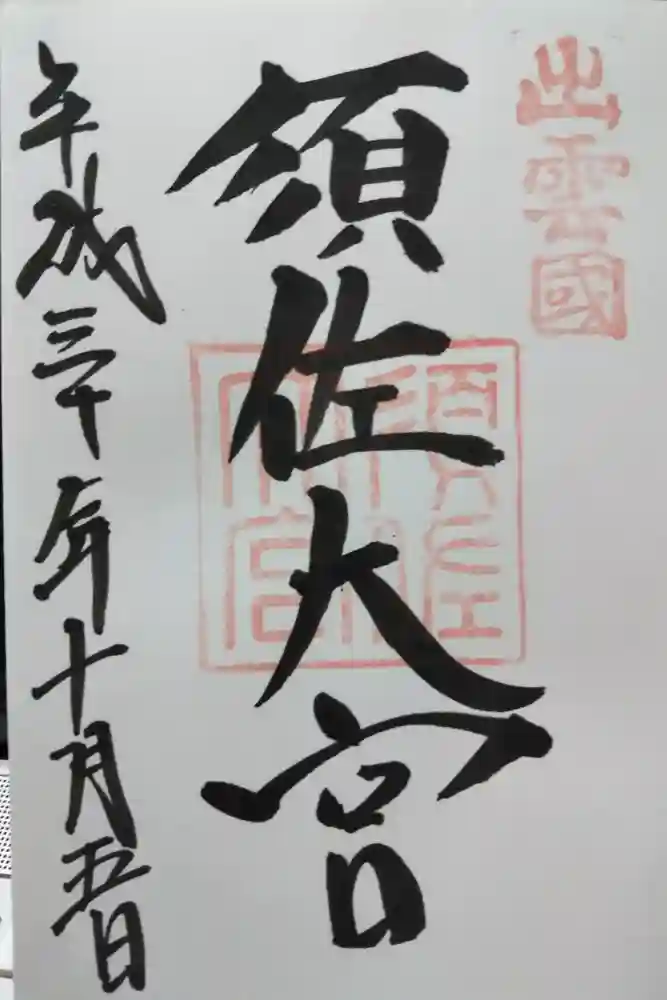 出雲國
須佐大宮
平成三十年十月五日